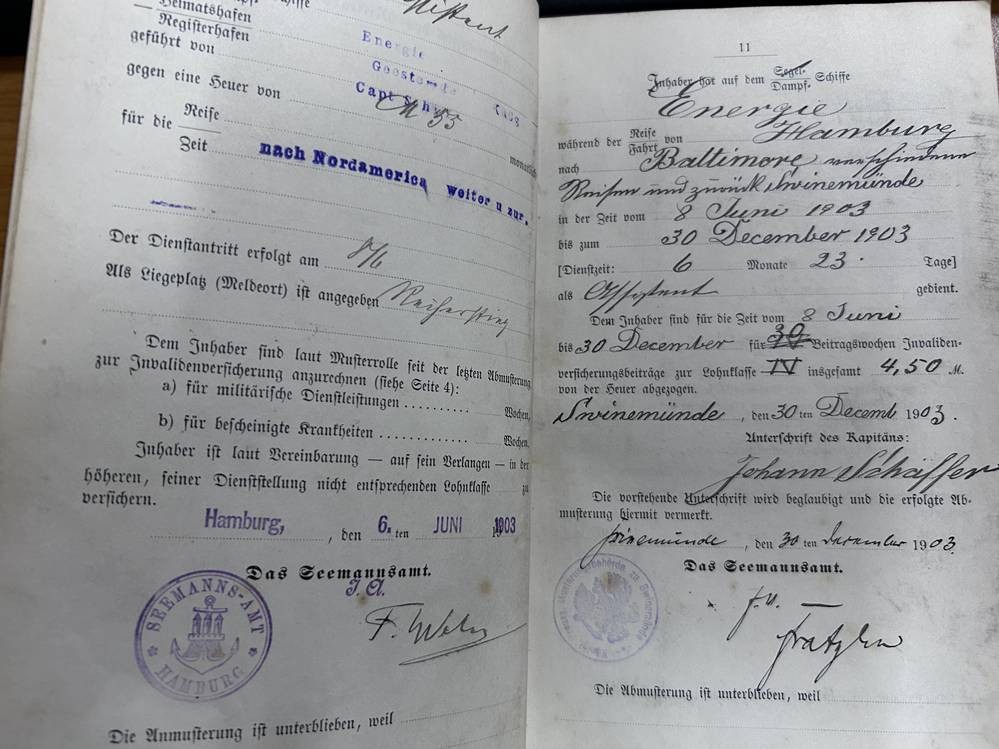 Schiffe
Assistent
Heimatshafen
Registerhafen
Energie
geführt von
Geestemünde
gegen eine Heuer von
Capt
M 55
monatlich
für die Reise
Zeit
nach Nordamerica weiter u zur.
Der Dienstantritt erfolgt am 8/6
Als Liegeplatz (Meldeort) ist angegeben Reiherstieg
Dem Inhaber sind laut Musterrolle seit der letzten Abmusterung
zur Invalidenversicherung anzurechnen (siehe Seite 4):
a) für militärische Dienstleistungen .......... Wochen,
b) für bescheinigte Krankheiten ............ Wochen.
Inhaber ist laut Vereinbarung — auf sein Verlangen — in der
höheren, seiner Dienststellung nicht entsprechenden Lohnklasse zu
versichern.
Hamburg, , den 6. ten JUNI 1903
Das Seemannsamt.
I. A.
SEEMANNS-AMT
HAMBURG
Die Anmusterung ist unterblieben, weil
11
Inhaber hat auf dem Segel- Dampf- Schiffe
Energie
während der Reise Fahrt von Hamburg
nach Baltimore verschiedene
Reisen und zurück Swinemünde
in der Zeit vom 8 Juni 1903
bis zum 30 December 1903
[Dienstzeit: 6 Monate 23. Tage]
als Assistent gedient.
Dem Inhaber sind für die Zeit vom 8 Juni
bis 30 December für 30 Beitragswochen Invaliden-
versicherungsbeiträge zur Lohnklasse IV insgesamt 4,50 M.
von der Heuer abgezogen.
Swinemünde, den 30 ten Decemb 1903.
Unterschrift des Kapitäns:
Johann Schäffer
Die vorstehende Unterschrift wird beglaubigt und die erfolgte Ab-
musterung hiermit vermerkt.
Swinemünde, den 30 ten December 1903.
Das Seemannsamt.
Die Abmusterung ist unterblieben, weil